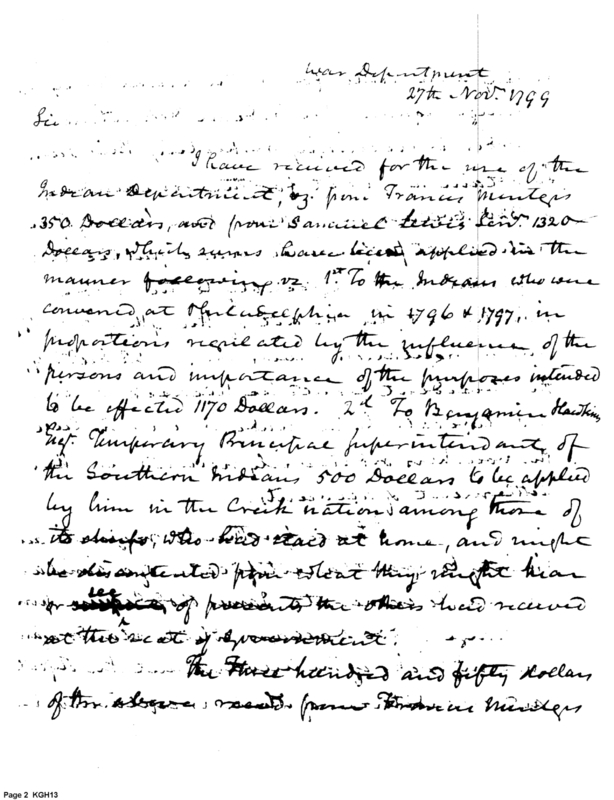 War Department
27th Nov. 1799
Sir
I have received for the use of the
Indian Department, vz. from Francis Mentges
350 Dollars, and from Samuel Lewis Senr. 1320
Dollars, which sums have been applied in the
manner following vz 1st To the Indians who were
convened at Philadelphia in 1796 & 1797, in
proportions regulated by the influence of the
persons and importance of the purposes intended
to be effected 1170 Dollars. 2d To Benjamin Hawkins
Esqr. Temporary Principal Superintendant of
the Southern Indians 500 Dollars to be applied
by him in the Creek nation among those of
its chiefs, who had staed at home, and might
be discontented from what they might hear
or see of presents the others had received
at the seat of Government.
The Three hundred and fifty dollars
of the above recd. from Francis Mentges
Page 2 KGH13